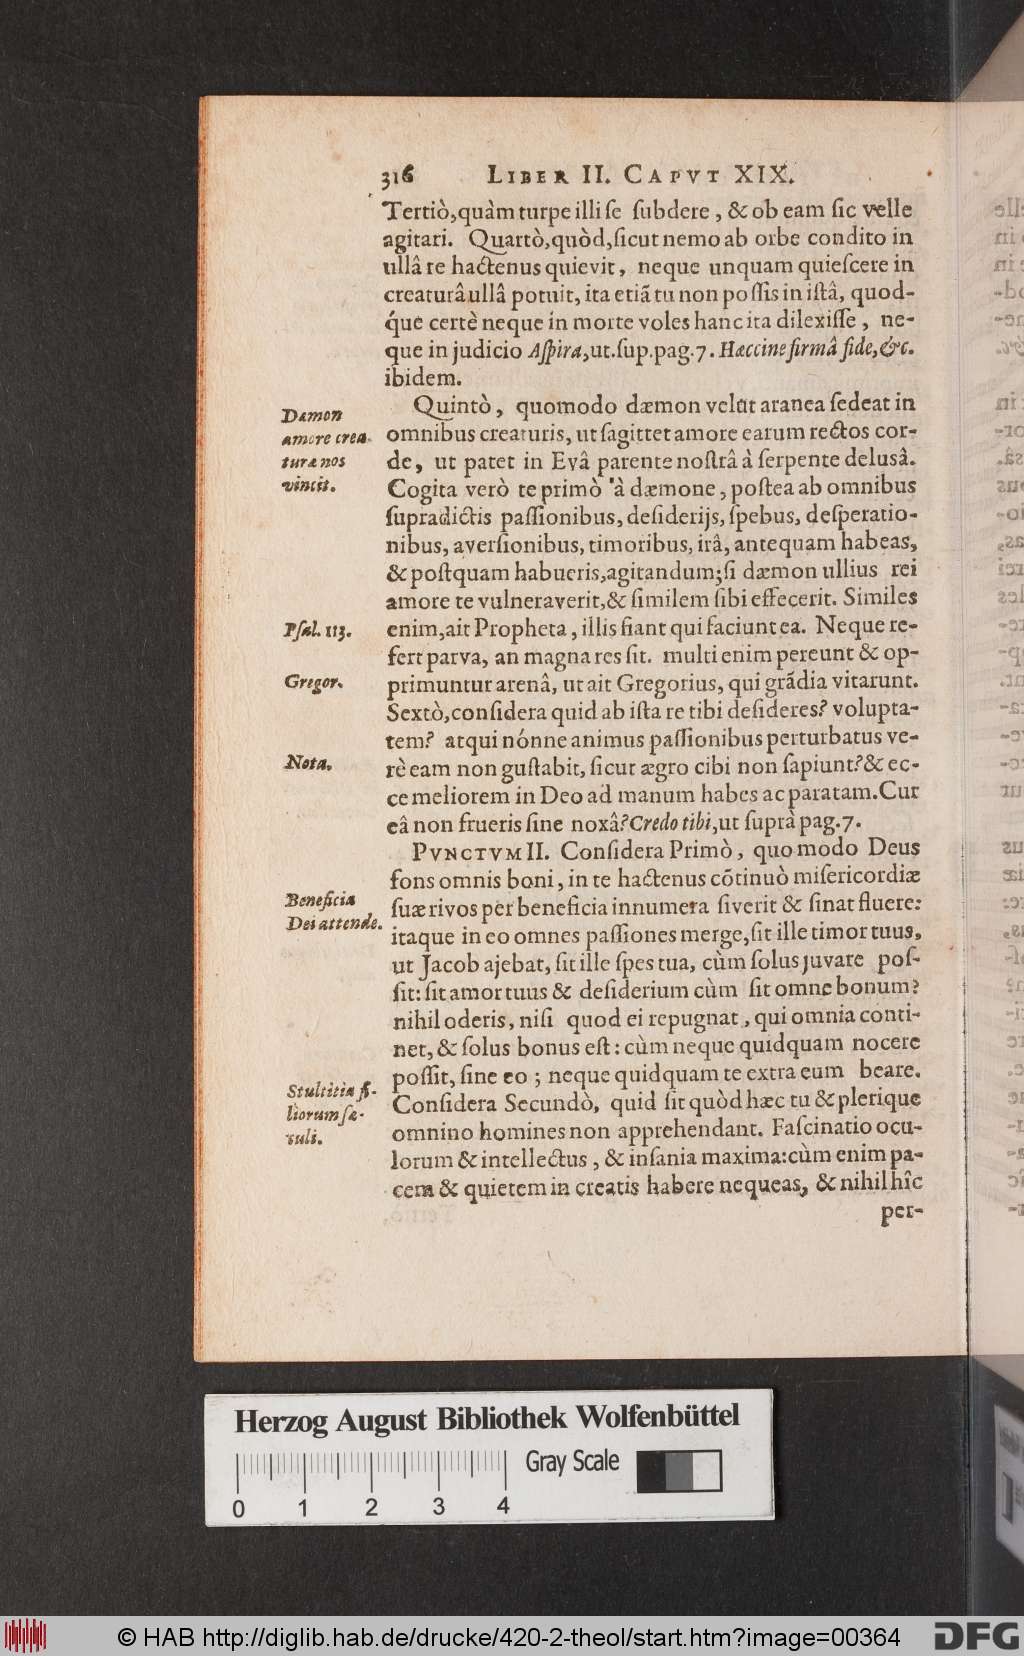 316 LIBER II. CAPVT XIX.
Tertiò, quàm turpe illi se subdere, & ob eam sic velle
agitari. Quartò, quòd, sicut nemo ab orbe condito in
ullâ re hactenus quievit, neque unquam quiescere in
creaturâ ullâ potuit, ita etiã tu non possis in istâ, quod-
q́ue certè neque in morte voles hanc ita dilexisse, ne-
que in judicio Aspira, ut. sup. pag. 7. Hæccine firmâ fide, &c.
ibidem.
Quintò, quomodo dæmon velut aranea sedeat in
Dæmon
omnibus creaturis, ut sagittet amore earum rectos cor-
amore crea-
de, ut patet in Evâ parente nostrâ à serpente delusâ.
turæ nos
Cogita verò te primò à dæmone, postea ab omnibus
vincit.
supradictis passionibus, desiderijs, spebus, desperatio-
nibus, aversionibus, timoribus, irâ, antequam habeas,
& postquam habueris, agitandum; si dæmon ullius rei
amore te vulneraverit, & similem sibi effecerit. Similes
Psal. 113.
enim, ait Propheta, illis fiant qui faciunt ea. Neque re-
fert parva, an magna res sit. multi enim pereunt & op-
Gregor.
primuntur arenâ, ut ait Gregorius, qui grãdia vitarunt.
Sextò, considera quid ab ista re tibi desideres? volupta-
tem? atqui nónne animus passionibus perturbatus ve-
Nota.
rè eam non gustabit, sicut ægro cibi non sapiunt? & ec-
ce meliorem in Deo ad manum habes ac paratam. Cur
eâ non frueris sine noxâ? Credo tibi, ut suprà pag. 7.
PVNCTVM II. Considera Primò, quomodo Deus
fons omnis boni, in te hactenus cõtinuò misericordiæ
Beneficia
suæ rivos per beneficia innumera siverit & sinat fluere:
Dei attende.
itaque in eo omnes passiones merge, sit ille timor tuus,
ut Jacob ajebat, sit ille spes tua, cùm solus juvare pos-
sit: sit amor tuus & desiderium cùm sit omne bonum?
nihil oderis, nisi quod ei repugnat, qui omnia conti-
net, & solus bonus est: cùm neque quidquam nocere
possit, sine eo; neque quidquam te extra eum beare.
Stultitia fi-
Considera Secundò, quid sit quòd hæc tu & plerique
liorum sæ-
omnino homines non apprehendant. Fascinatio ocu-
culi.
lorum & intellectus, & insania maxima: cùm enim pa-
cem & quietem in creatis habere nequeas, & nihil hîc
per-
Herzog August Bibliothek Wolfenbüttel
Gray Scale
0 1 2 3 4
© HAB http://diglib.hab.de/drucke/420-2-theol/start.htm?image=00364
DFG